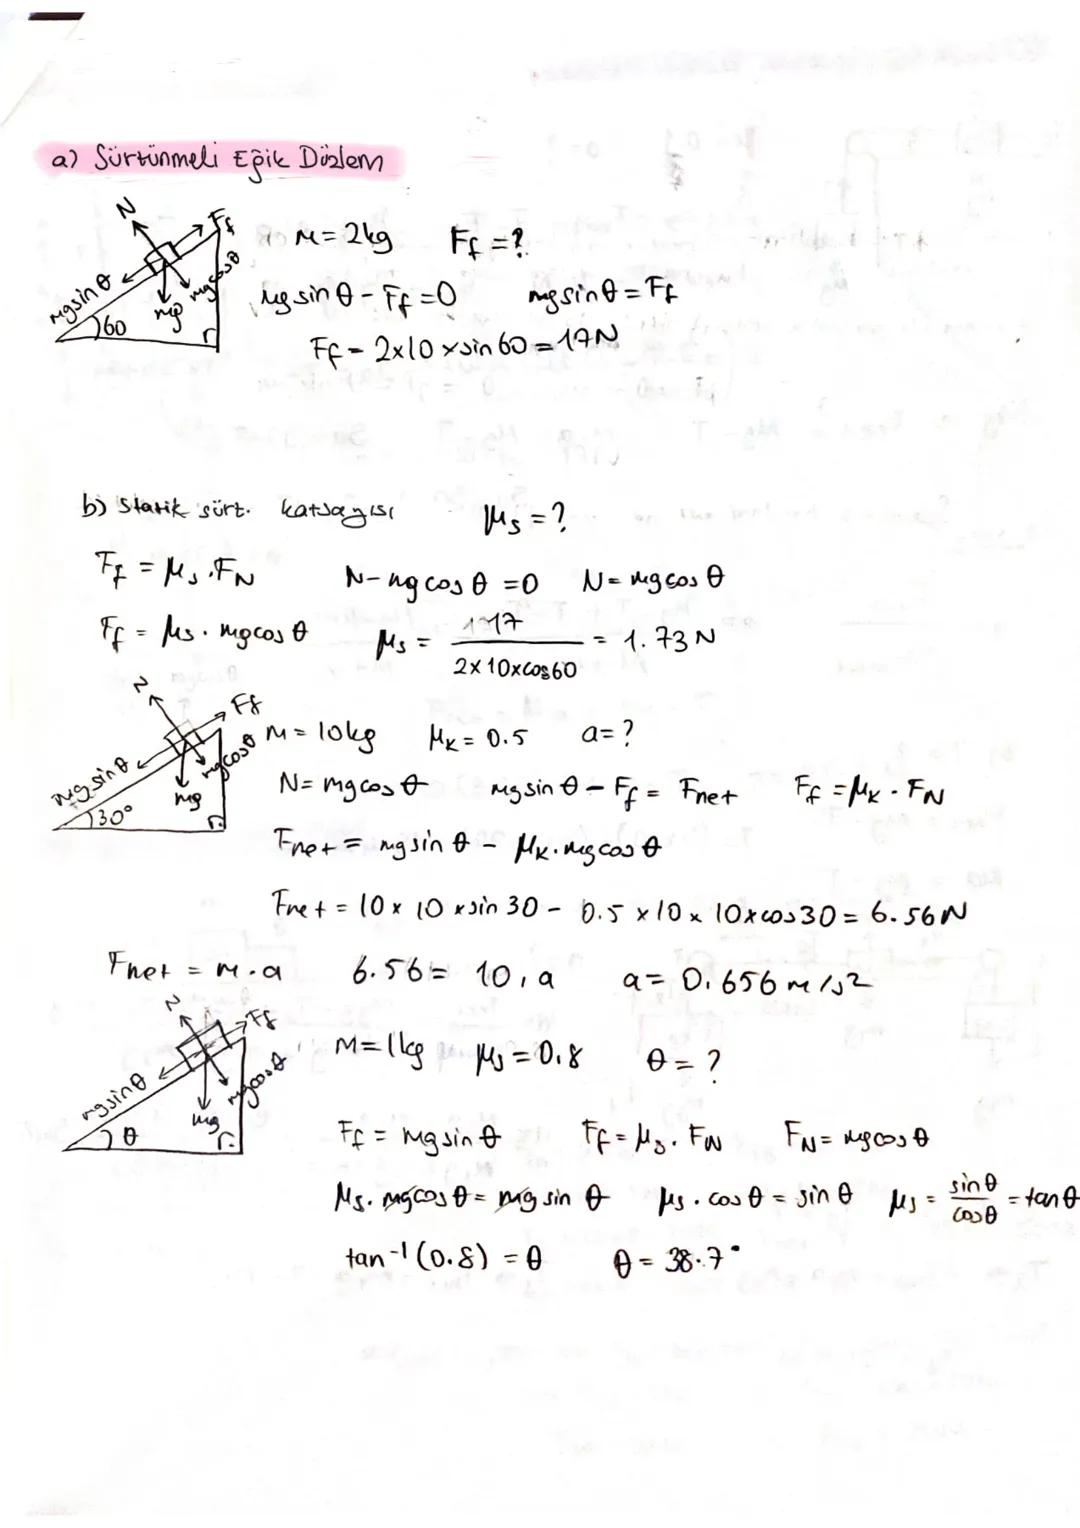 a) Sürtünmeli Eğik Düzlem
N Ff
mgsinθ mg mgcosθ
60
M = 2kg Ff = ?
mgsinθ - Ff = 0 mgsinθ = Ff
Ff = 2x10 x sin 60 = 17N
b) Statik sürt. katsayısı μs = ?
Ff = μs . FN N - mg cos θ = 0 N = mg cos θ
Ff = μs . mgcos θ μs = 17 / 2x10xcos60 = 1.73 N
N Ff
mgsinθ mg mgcosθ
30°
M = 10kg μk = 0.5 a = ?
N = mgcos θ mgsin θ - Ff = Fnet Ff = μk . FN
Fnet = mgsin θ - μk . mgcos θ
Fnet = 10 x 10 x sin 30 - 0.5 x 10 x 10xcos30 = 6.56N
Fnet = m . a 6.56 = 10 . a a = 0.656 m/s²
N Ff
mgsinθ mg mgcosθ
θ
M = 1kg μs = 0.8 θ = ?
Ff = mgsin θ Ff = μs . FN FN = mgcos θ
μs . mgcos θ = mg sin θ μs . cos θ = sin θ μs = sinθ / cosθ = tanθ
tan⁻¹ (0.8) = θ θ = 38.7°